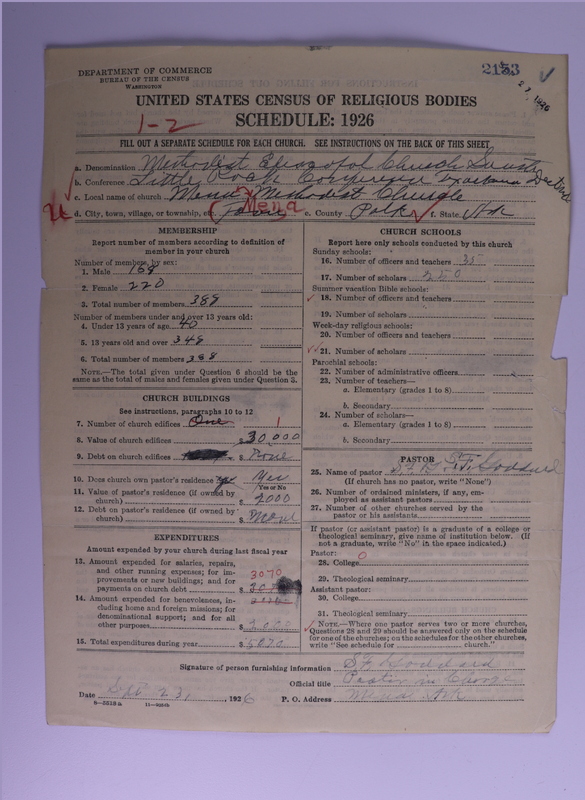 DEPARTMENT OF COMMERCE
BUREAU OF THE CENSUS
WASHINGTON
2153
UNITED STATES CENSUS OF RELIGIOUS BODIES
1-2
SCHEDULE: 1926
FILL OUT A SEPARATE SCHEDULE FOR EACH CHURCH. SEE INSTRUCTIONS ON THE BACK OF THIS SHEET
a. Denomination Methodist Episcopal Church South
b. Conference Little Rock Conference Texarkana District
c. Local name of church Mena Methodist Church
d. City, town, village, or township, etc. (town) Mena e. County Polk f. State Ark
MEMBERSHIP
Report number of members according to definition of member in your church
Number of members, by sex:
1. Male 169
2. Female 220
3. Total number of members 389
Number of members under and over 13 years old:
4. Under 13 years of age 40
5. 13 years old and over 348
6. Total number of members 388
NOTE.—The total given under Question 6 should be
the same as the total of males and females given under Question 3.
CHURCH BUILDINGS
See instructions, paragraphs 10 to 12
7. Number of church edifices One 1
8. Value of church edifices $ 30,000
9. Debt on church edifices $ None
10. Does church own pastor's residence? Yes
Yes or No
11. Value of pastor's residence (if owned by
church) $ 2000
12. Debt on pastor's residence (if owned by
church) $ None
EXPENDITURES
Amount expended by your church during last fiscal year
13. Amount expended for salaries, repairs,
and other running expense; for im-
provements or new buildings; and for
payments on church debt $ 3070
14. Amount expended for benevolences, in-
cluding home and foreign missions; for
denominational support; and for all
other purposes $ 2000
15. Total expenditures during year $ 5070
CHURCH SCHOOLS
Report here only schools conducted by this church
Sunday schools:
16. Number of officers and teachers 35
17. Number of scholars 250
Summer vacation Bible schools:
18. Number of officers and teachers
19. Number of scholars
Week-day religious schools:
20. Number of officers and teachers
21. Number of scholars
Parochial schools:
22. Number of administrative officers
23. Number of teachers—
a. Elementary (grades 1 to 8)
b. Secondary
24. Number of scholars—
a. Elementary (grades 1 to 8)
b. Secondary
PASTOR
25. Name of pastor S. F. Goddard
(If church has no pastor, write "None")
26. Number of ordained ministers, if any, em-
ployed as assistant pastors
27. Number of other churches served by the
pastor or his assistants
If pastor (or assistant pastor) is a graduate of a college or
theological seminary, give name of institution below. (If
not a graduate, write "No" in the space indicated.)
Pastor:
28. College 0
29. Theological seminary
Assistant pastor:
30. College
31. Theological seminary
NOTE.—Where one pastor serves two or more churches,
Questions 28 and 29 should be answered only on the schedule
for one of the churches; on the schedules for the other churches,
write "See schedule for church."
Signature of person furnishing information S F Goddard
Official title Pastor in Charge
Date Sept 23, 1926 P. O. Address Mena Ark